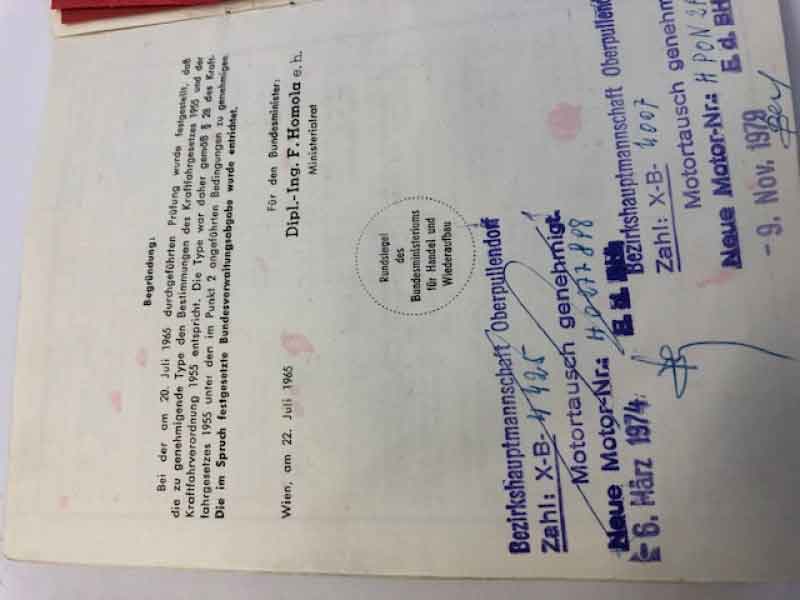 Begründung:
Bei der am 20. Juli 1965 durchgeführten Prüfung wurde festgestellt, daß
die zu genehmigende Type den Bestimmungen des Kraftfahrgesetzes 1955 und der
Kraftfahrverordnung 1955 entspricht. Die Type war daher gemäß § 28 des Kraft-
fahrgesetzes 1955 unter den im Punkt 2 angeführten Bedingungen zu genehmigen.
Die im Spruch festgesetzte Bundesverwaltungsabgabe wurde entrichtet.
Wien, am 22. Juli 1965
Für den Bundesminister:
Dipl.-Ing. F. Homola e. h.
Ministerialrat
Rundsiegel
des
Bundesministeriums
für Handel und
Wiederaufbau
Bezirkshauptmannschaft Oberpullendorf
Zahl: X-B- 4425
Motortausch genehmigt.
Neue Motor-Nr.:
6. März 1974
Bezirkshauptmannschaft Oberpullendo
Zahl: X-B- 4007
Motortausch genehm
Neue Motor-Nr.: HPON
E. d. BH
- 9. Nov. 1979